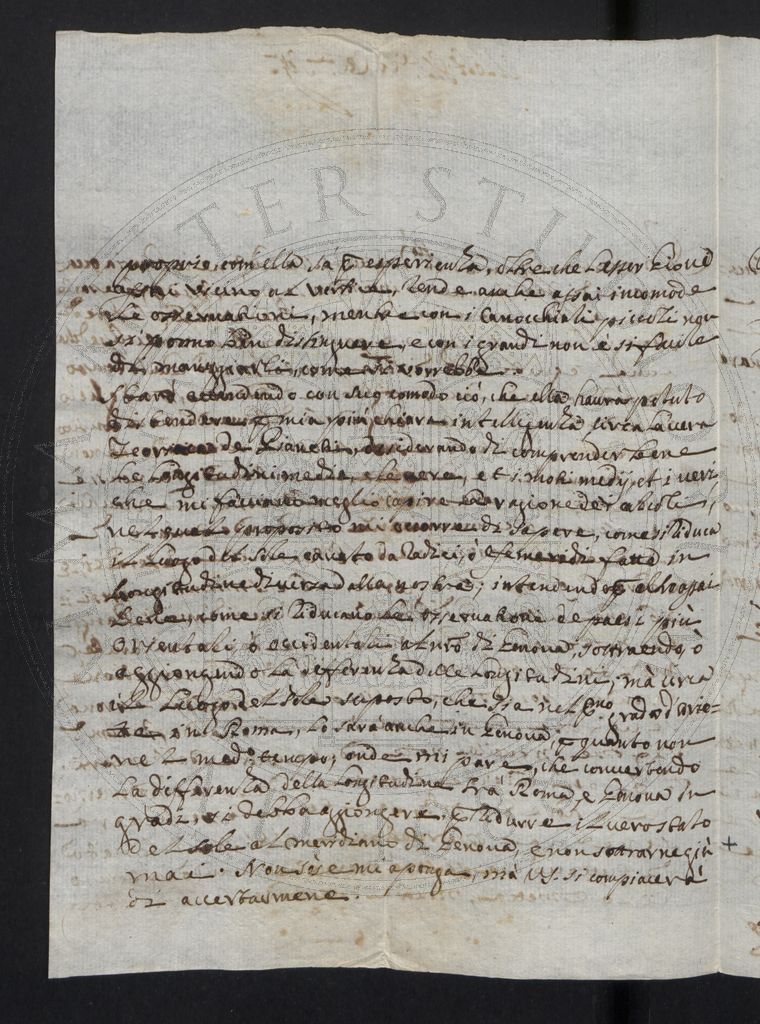 TER STU
proprio, com'ella sà p esperienza, oltre che l'esser Giove
assai vicino al vertice, rende anche assai incomode
le osservationi, mentre con i Canocchiali piccoli non
si possono ben distinguere, e con i grandi non è sì facile
il maneggiarli, come si vorrebbe.
Starò attendendo con suo comodo ciò, che ella haurà potuto
distendere p mia più chiara intelligenza circa la vera
Teorica de Pianeti, desiderando di comprender bene
le longitudini medie, e le vere, et i moti medij, et i veri
che mi facciano meglio capire la ragione dei calcoli,
nel qual proposito mi occorre di sapere, come si riduca
il luogo del Sole cavato da radici, ò Efemeridi fatte in
longitudine diversa dalla nostra; intendendo p assai
bene, come si riducano le osservationi de paesi più
Orientali, ò occidentali al nrõ di Genova, sottraendo, ò
aggiongendo la differenza delle Longitudini, mà circa
il Luogo del Sole suposto, che sia nel pmo grado d'Arie-
te in Roma, lo sarà anche in Genova, p quanto non
nel medº tempo; onde mi pare, che convertendo
la differenza della longitudine trà Roma, e Genova in
gradi, si debba aggiongere, p ridurre il vero stato
del Sole al meridiano di Genova, e non sottrarne già
mai. Non sò se mi aponga, mà VS. si compiacerà
di accertarmene.
+